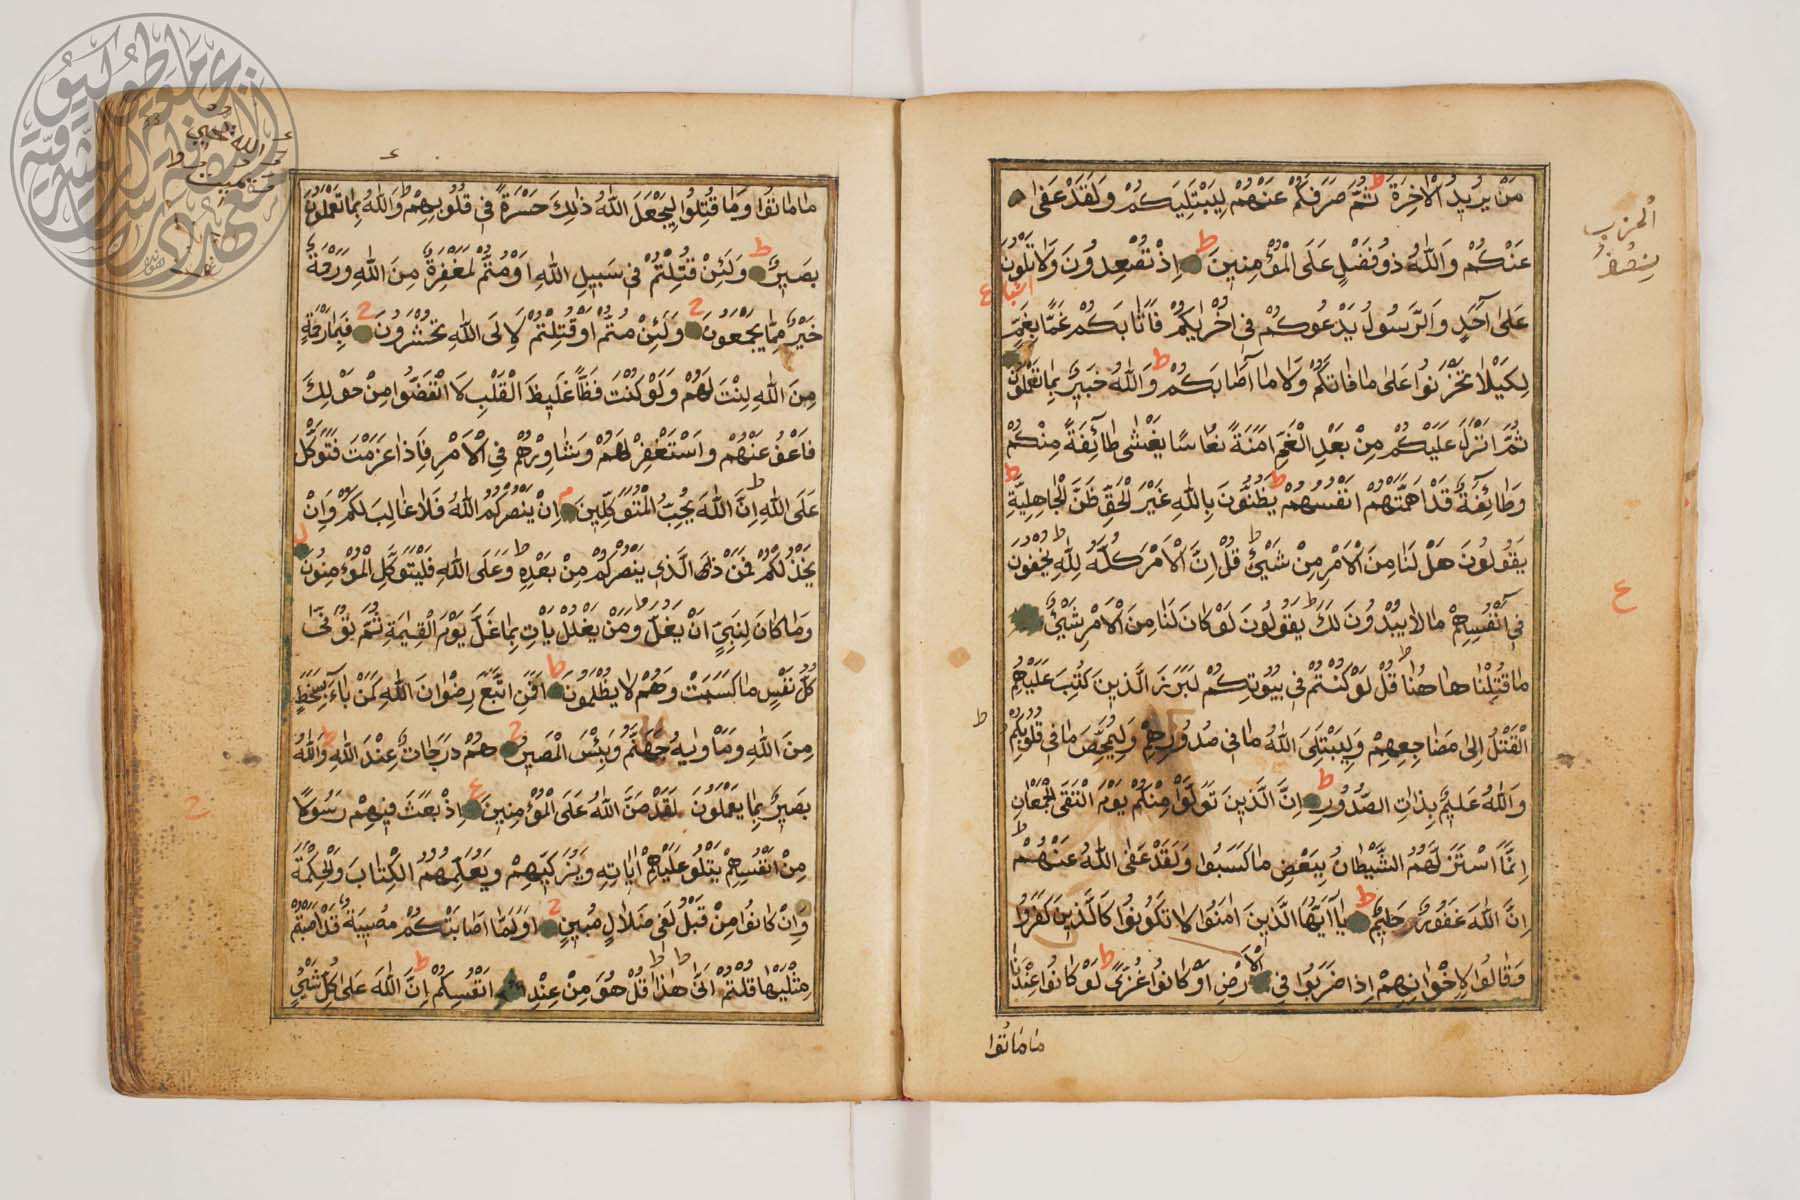 مَنْ يُرِيدُ الْاٰخِرَةَ ثُمَّ صَرَفَكُمْ عَنْهُمْ لِيَبْتَلِيَكُمْ وَلَقَدْ عَفٰى
عَنْكُمْ وَاللّٰهُ ذُو فَضْلٍ عَلَى الْمُؤْمِنِينَ اِذْ تُصْعِدُونَ وَلَا تَلْوُنَ
عَلٰى اَحَدٍ وَالرَّسُولُ يَدْعُوكُمْ فِى اُخْرٰيكُمْ فَاَثَابَكُمْ غَمًّا بِغَمٍّ
لِكَيْلَا تَحْزَنُوا عَلٰى مَا فَاتَكُمْ وَلَا مَا اَصَابَكُمْ وَاللّٰهُ خَبِيرٌ بِمَا تَعْمَلُونَ
ثُمَّ اَنْزَلَ عَلَيْكُمْ مِنْ بَعْدِ الْغَمِّ اَمَنَةً نُعَاسًا يَغْشٰى طَائِفَةً مِنْكُمْ
وَطَائِفَةٌ قَدْ اَهَمَّتْهُمْ اَنْفُسُهُمْ يَظُنُّونَ بِاللّٰهِ غَيْرَ الْحَقِّ ظَنَّ الْجَاهِلِيَّةِ
يَقُولُونَ هَلْ لَنَا مِنَ الْاَمْرِ مِنْ شَيْئٍ قُلْ اِنَّ الْاَمْرَ كُلَّهُ لِلّٰهِ يُخْفُونَ
فِى اَنْفُسِهِمْ مَا لَا يُبْدُونَ لَكَ يَقُولُونَ لَوْ كَانَ لَنَا مِنَ الْاَمْرِ شَيْئٌ
مَا قُتِلْنَا هَاهُنَا قُلْ لَوْ كُنْتُمْ فِى بُيُوتِكُمْ لَبَرَزَ الَّذِينَ كُتِبَ عَلَيْهِمُ
الْقَتْلُ اِلٰى مَضَاجِعِهِمْ وَلِيَبْتَلِىَ اللّٰهُ مَا فِى صُدُورِكُمْ وَلِيُمَحِّصَ مَا فِى قُلُوبِكُمْ
وَاللّٰهُ عَلِيمٌ بِذَاتِ الصُّدُورِ اِنَّ الَّذِينَ تَوَلَّوْا مِنْكُمْ يَوْمَ الْتَقَى الْجَمْعَانِ
اِنَّمَا اسْتَزَلَّهُمُ الشَّيْطَانُ بِبَعْضِ مَا كَسَبُوا وَلَقَدْ عَفَى اللّٰهُ عَنْهُمْ
اِنَّ اللّٰهَ غَفُورٌ حَلِيمٌ يَا اَيُّهَا الَّذِينَ اٰمَنُوا لَا تَكُونُوا كَالَّذِينَ كَفَرُوا
وَقَالُوا لِاِخْوَانِهِمْ اِذَا ضَرَبُوا فِى الْاَرْضِ اَوْ كَانُوا غُزًّى لَوْ كَانُوا عِنْدَنَا
مَا مَاتُوا
الحزب
نصف
اشباع
مَا مَاتُوا وَمَا قُتِلُوا لِيَجْعَلَ اللّٰهُ ذٰلِكَ حَسْرَةً فِى قُلُوبِهِمْ وَاللّٰهُ بِمَا تَعْمَلُونَ
بَصِيرٌ وَلَئِنْ قُتِلْتُمْ فِى سَبِيلِ اللّٰهِ اَوْ مُتُّمْ لَمَغْفِرَةٌ مِنَ اللّٰهِ وَرَحْمَةٌ
خَيْرٌ مِمَّا يَجْمَعُونَ وَلَئِنْ مُتُّمْ اَوْ قُتِلْتُمْ لَاِلَى اللّٰهِ تُحْشَرُونَ فَبِمَا رَحْمَةٍ
مِنَ اللّٰهِ لِنْتَ لَهُمْ وَلَوْ كُنْتَ فَظًّا غَلِيظَ الْقَلْبِ لَانْفَضُّوا مِنْ حَوْلِكَ
فَاعْفُ عَنْهُمْ وَاسْتَغْفِرْ لَهُمْ وَشَاوِرْهُمْ فِى الْاَمْرِ فَاِذَا عَزَمْتَ فَتَوَكَّلْ
عَلَى اللّٰهِ اِنَّ اللّٰهَ يُحِبُّ الْمُتَوَكِّلِينَ اِنْ يَنْصُرْكُمُ اللّٰهُ فَلَا غَالِبَ لَكُمْ وَاِنْ
يَخْذُلْكُمْ فَمَنْ ذَا الَّذِى يَنْصُرُكُمْ مِنْ بَعْدِهِ وَعَلَى اللّٰهِ فَلْيَتَوَكَّلِ الْمُؤْمِنُونَ
وَمَا كَانَ لِنَبِىٍّ اَنْ يَغُلَّ وَمَنْ يَغْلُلْ يَأْتِ بِمَا غَلَّ يَوْمَ الْقِيٰمَةِ ثُمَّ تُوَفّٰى
كُلُّ نَفْسٍ مَا كَسَبَتْ وَهُمْ لَا يُظْلَمُونَ اَفَمَنِ اتَّبَعَ رِضْوَانَ اللّٰهِ كَمَنْ بَاءَ بِسَخَطٍ
مِنَ اللّٰهِ وَمَأْوٰيهُ جَهَنَّمُ وَبِئْسَ الْمَصِيرُ هُمْ دَرَجَاتٌ عِنْدَ اللّٰهِ وَاللّٰهُ
بَصِيرٌ بِمَا يَعْمَلُونَ لَقَدْ مَنَّ اللّٰهُ عَلَى الْمُؤْمِنِينَ اِذْ بَعَثَ فِيهِمْ رَسُولًا
مِنْ اَنْفُسِهِمْ يَتْلُو عَلَيْهِمْ اٰيَاتِهِ وَيُزَكِّيهِمْ وَيُعَلِّمُهُمُ الْكِتَابَ وَالْحِكْمَةَ
وَاِنْ كَانُوا مِنْ قَبْلُ لَفِى ضَلَالٍ مُبِينٍ اَوَلَمَّا اَصَابَتْكُمْ مُصِيبَةٌ قَدْ اَصَبْتُمْ
مِثْلَيْهَا قُلْتُمْ اَنّٰى هٰذَا قُلْ هُوَ مِنْ عِنْدِ اَنْفُسِكُمْ اِنَّ اللّٰهَ عَلٰى كُلِّ شَيْئٍ